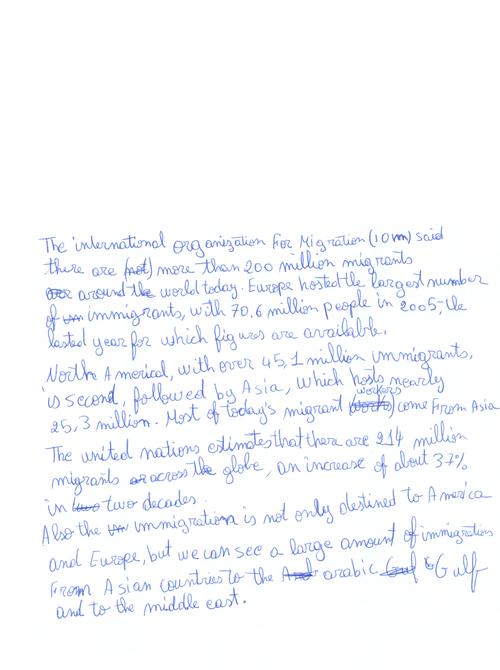 The international organization For Migration (IOM) said
there are (not) more than 200 million migrants
around the world today. Europe hosted the largest number
of immigrants, with 70,6 million people in 2005, the
lasted year for which figures are available.
Northe Americal, with over 45,1 million immigrants,
is second, followed by Asia, which hosts nearly
25,3 million. Most of today's migrant workers come From Asia
The united nations estimates that there are 214 million
migrants across the globe, an increase of about 37%
in two decades.
Also the immigration is not only destined to America
and Europe, but we can see a large amount of immigration
From Asian countries to the arabic Gulf
and to the middle east.